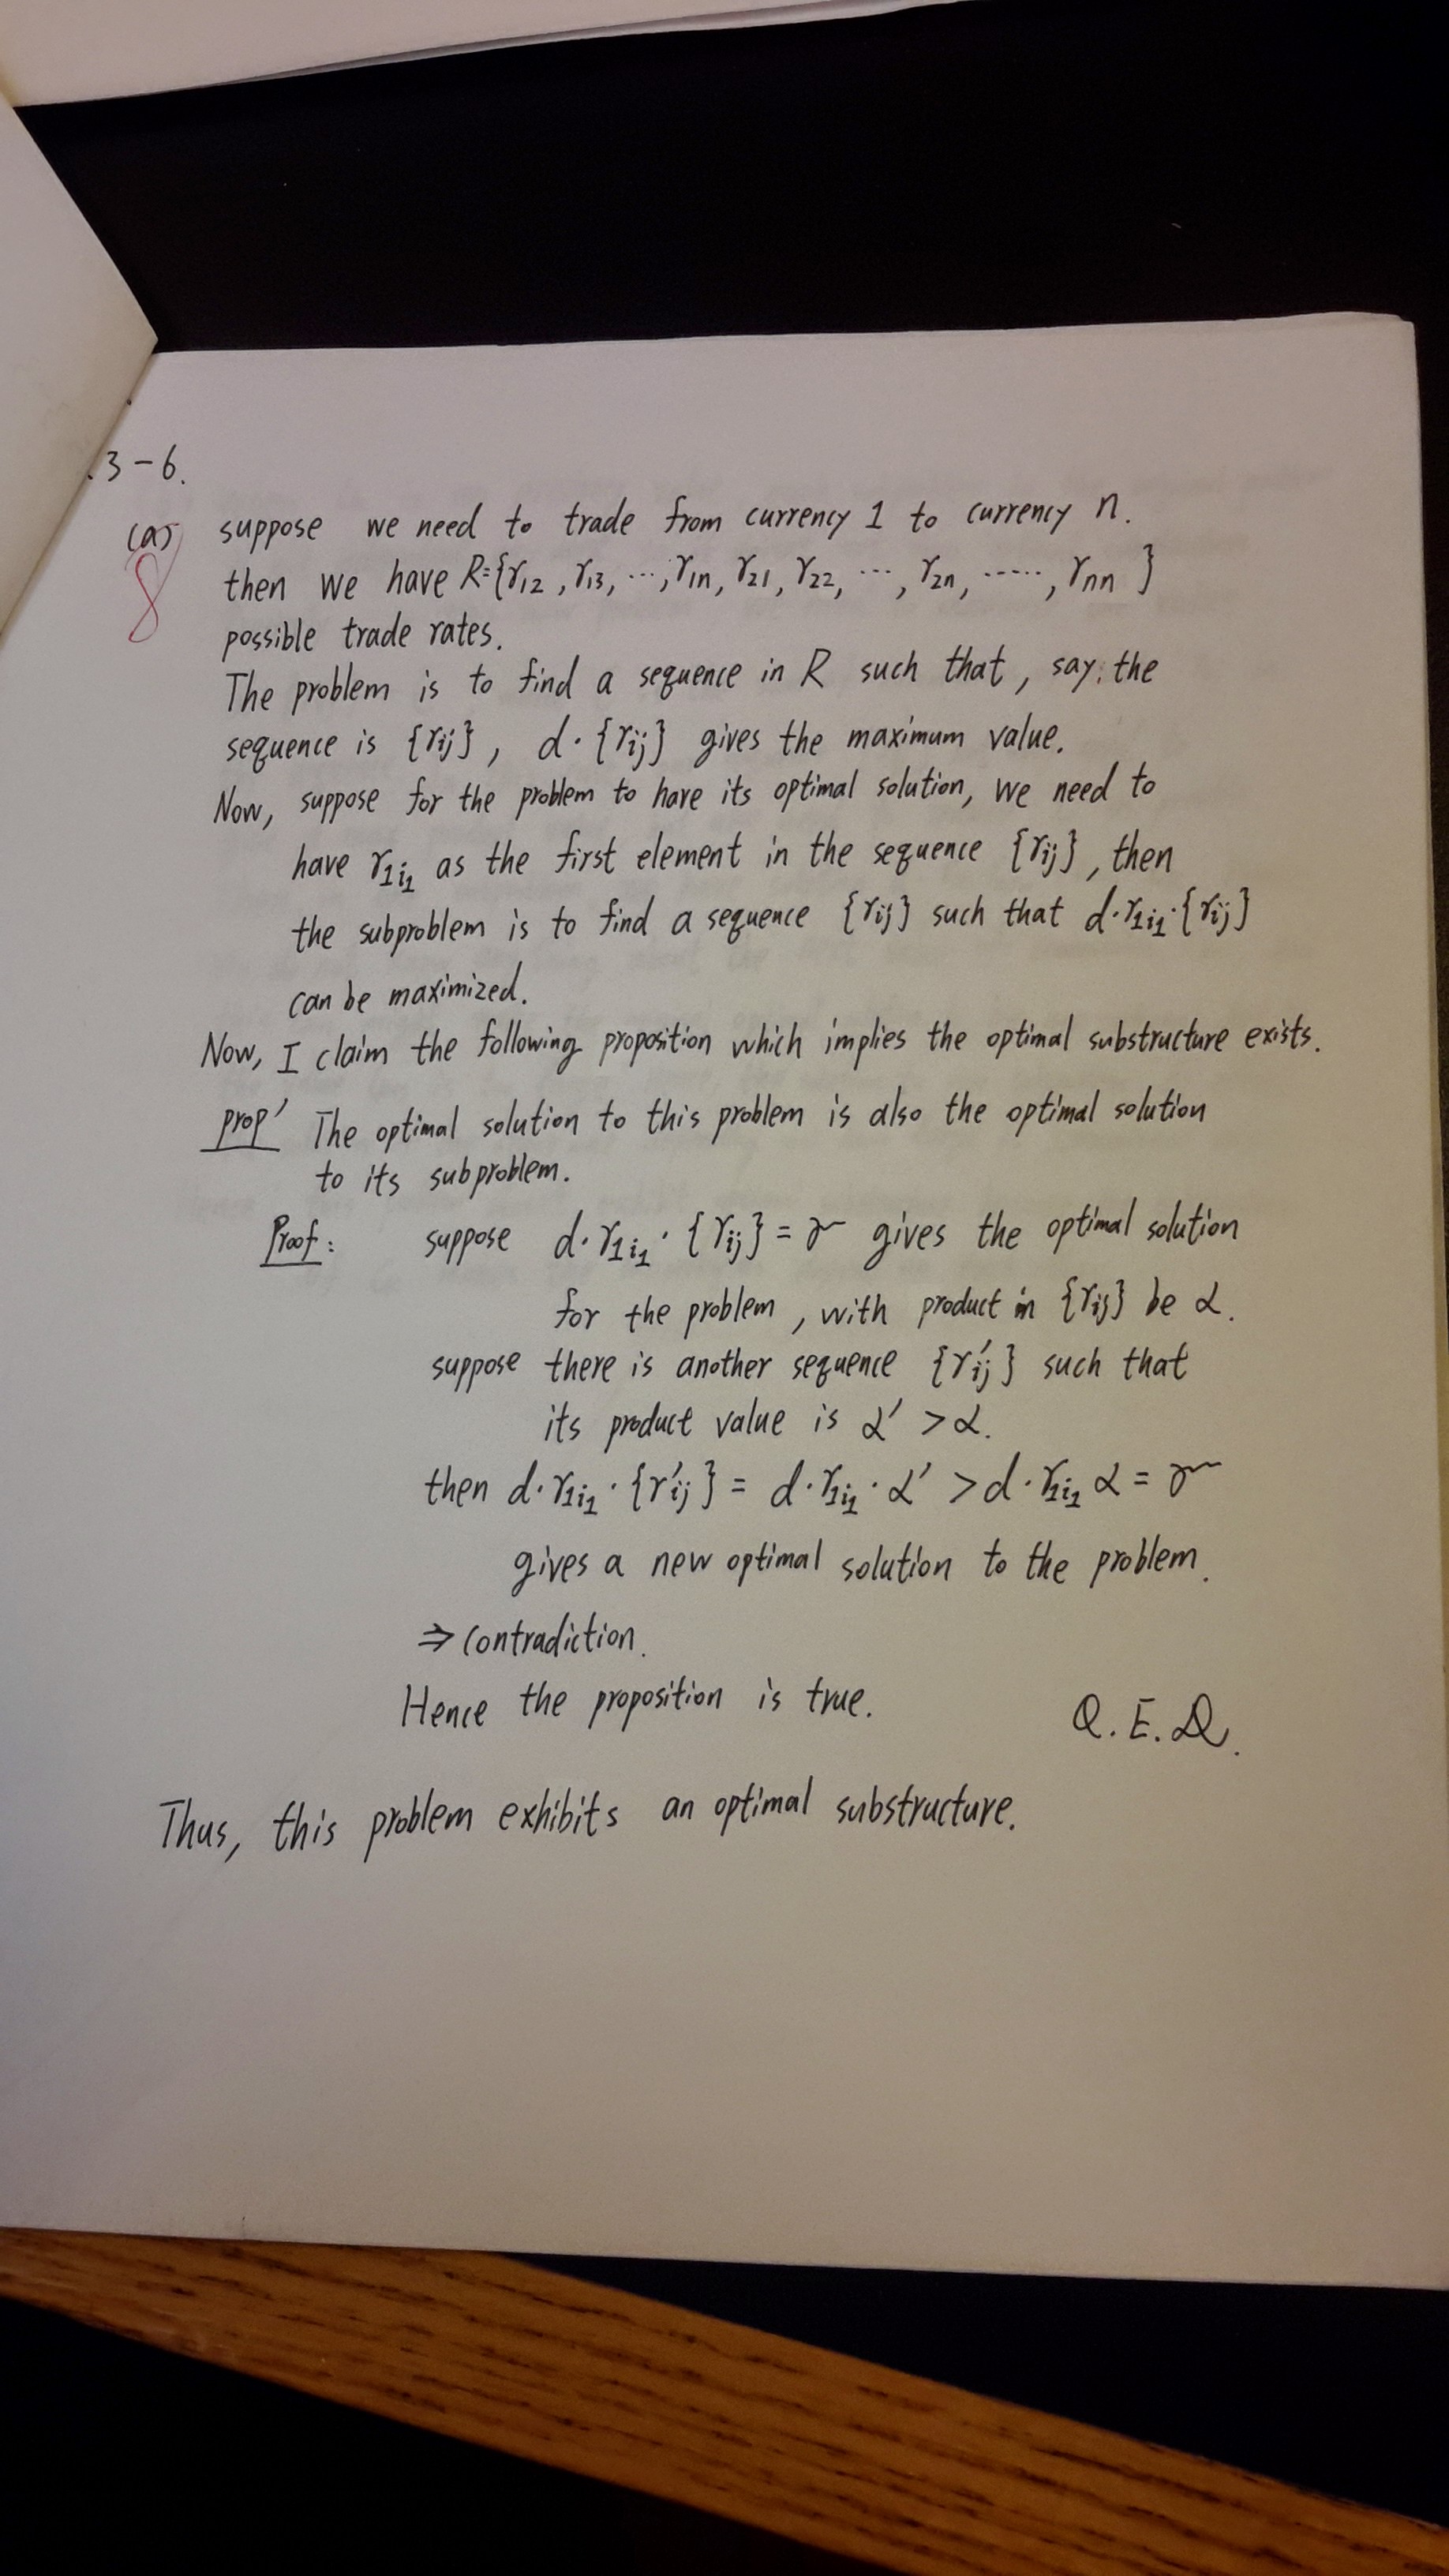 .3-6.
(a) suppose we need to trade from currency 1 to currency n.
8 then we have R={r12, r13, ..., r1n, r21, r22, ..., r2n, ....., rnn }
possible trade rates.
The problem is to find a sequence in R such that, say, the
sequence is {rij}, d·{rij} gives the maximum value.
Now, suppose for the problem to have its optimal solution, we need to
have r1i1 as the first element in the sequence {rij}, then
the subproblem is to find a sequence {rij} such that d·r1i1·{rij}
can be maximized.
Now, I claim the following proposition which implies the optimal substructure exists.
prop' The optimal solution to this problem is also the optimal solution
to its subproblem.
Proof: suppose d·r1i1·{rij} = r gives the optimal solution
for the problem, with product in {rij} be α.
suppose there is another sequence {r'ij} such that
its product value is α' > α.
then d·r1i1·{r'ij} = d·r1i1·α' > d·r1i1 α = r
gives a new optimal solution to the problem.
⇒ contradiction.
Hence the proposition is true. Q.E.D.
Thus, this problem exhibits an optimal substructure.